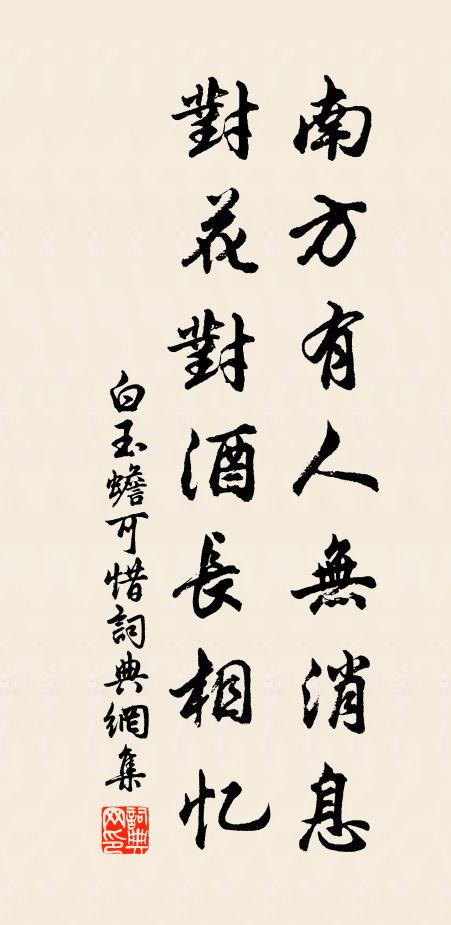 南方有人無消息
對花對酒長相忆
白玉蟾可惜詞典網集
詞典网印